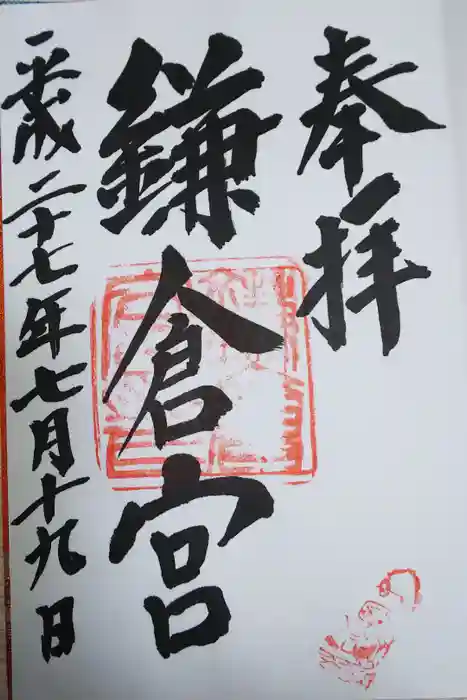 奉拝
鎌倉宮
平成二十七年七月十九日